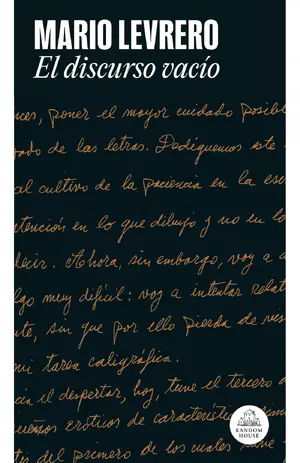 MARIO LEVRERO
El discurso vacío
nces, poner el mayor cuidado posible
zado de las letras. Dediquemos este
al cultivo de la paciencia en la esc
tención en lo que dibujo y no en lo
decir. Ahora, sin embargo, voy a
lgo muy difícil: voy a intentar relat
te, sin que por ello pierda de vis
mi tarea caligráfica.
cia el despertar, hoy, tuve el tercero
sueños eróticos de característic
tir del primero de los cuales
RANDOM
HOUSE